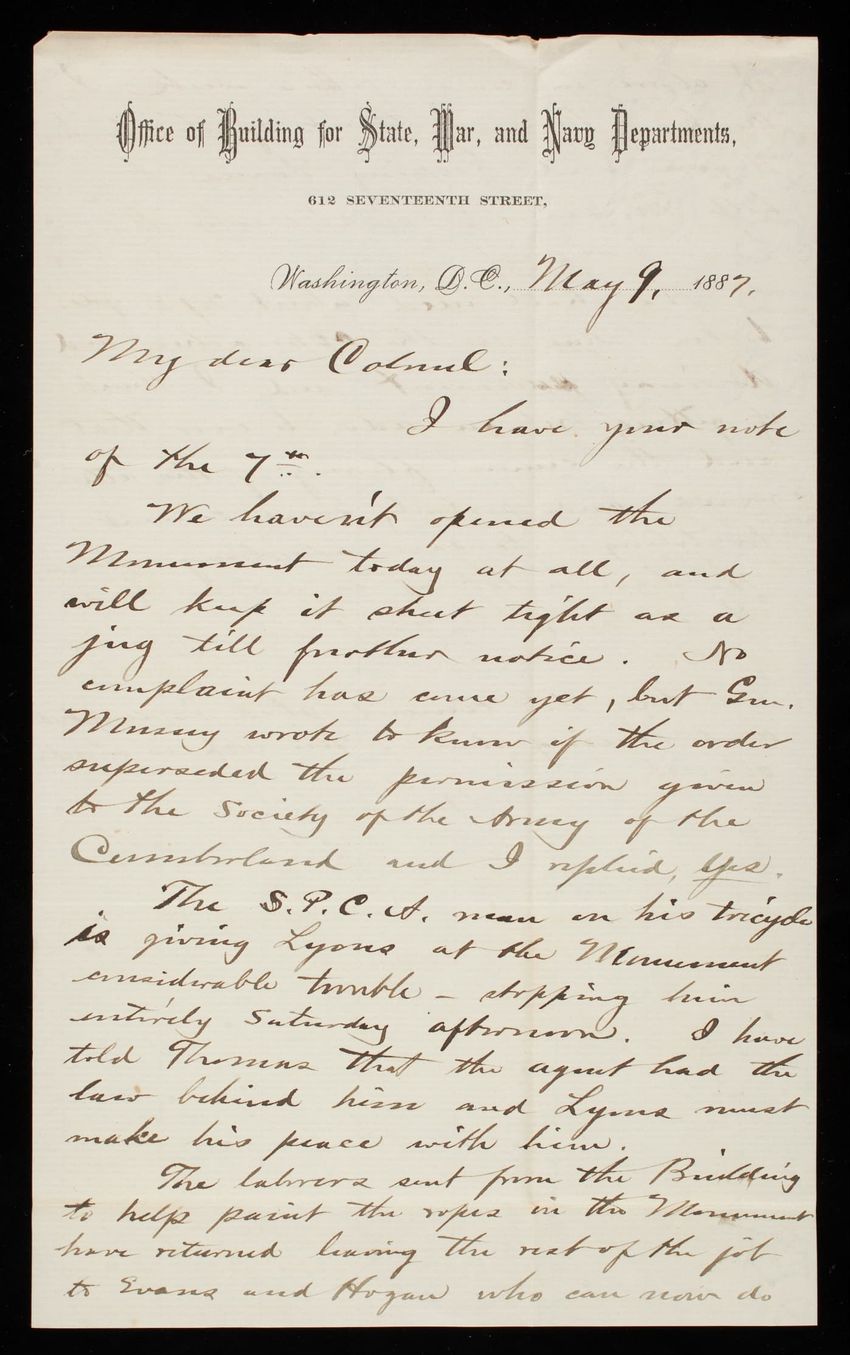 Office of Building for State, War, and Navy Departments,
612 SEVENTEENTH STREET,
Washington, D.C., May 9, 1887.
My dear Colonel:
I have your note
of the 7th.
We haven't opened the
Monument today at all, and
will keep it shut tight as a
jug till further notice. No
complaint has come yet, but Gen.
Mussey wrote to know if the order
superseded the permission given
to the Society of the Army of the
Cumberland and I replied, Yes.
The S.P.C.A. man on his tricycle
is giving Lyons at the Monument
considerable trouble - stopping him
entirely Saturday afternoon. I have
told Thomas that the agent had the
law behind him and Lyons must
make his peace with him.
The laborers sent from the Building
to help paint the ropes in the Monument
have returned leaving the rest of the job
to Evans and Hogan who can now do